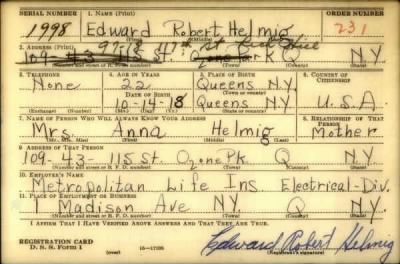 SERIAL NUMBER 1. NAME (Print) ORDER NUMBER
1998 Edward Robert Helmig 231
(First) (Middle) (Last)
2. ADDRESS (Print)
109-43- 115 St. Ozone Park Q N.Y.
(Number and street or R. F. D. number) (Town) (County) (State)
3. TELEPHONE 4. AGE IN YEARS 5. PLACE OF BIRTH 6. COUNTRY OF CITIZENSHIP
None 22 Queens N.Y.
DATE OF BIRTH (Town or county)
10-14-18 Queens N.Y. U.S.A.
(Exchange) (Number) (Mo.) (Day) (Yr.) (State or country)
7. NAME OF PERSON WHO WILL ALWAYS KNOW YOUR ADDRESS 8. RELATIONSHIP OF THAT PERSON
Mrs. Anna Helmig Mother
(Mr., Mrs., Miss) (First) (Middle) (Last)
9. ADDRESS OF THAT PERSON
109-43- 115 St. Ozone Pk. Q N.Y.
(Number and street or R. F. D. number) (Town) (County) (State)
10. EMPLOYER'S NAME
Metropolitan Life Ins Electrical-Div.
11. PLACE OF EMPLOYMENT OR BUSINESS
1 Madison Ave NY. Q N.Y.
(Number and street or R. F. D. number) (Town) (County) (State)
I AFFIRM THAT I HAVE VERIFIED ABOVE ANSWERS AND THAT THEY ARE TRUE.
REGISTRATION CARD
D. S. S. FORM 1 (over) 16-17105 Edward Robert Helmig
(Registrant's signature)